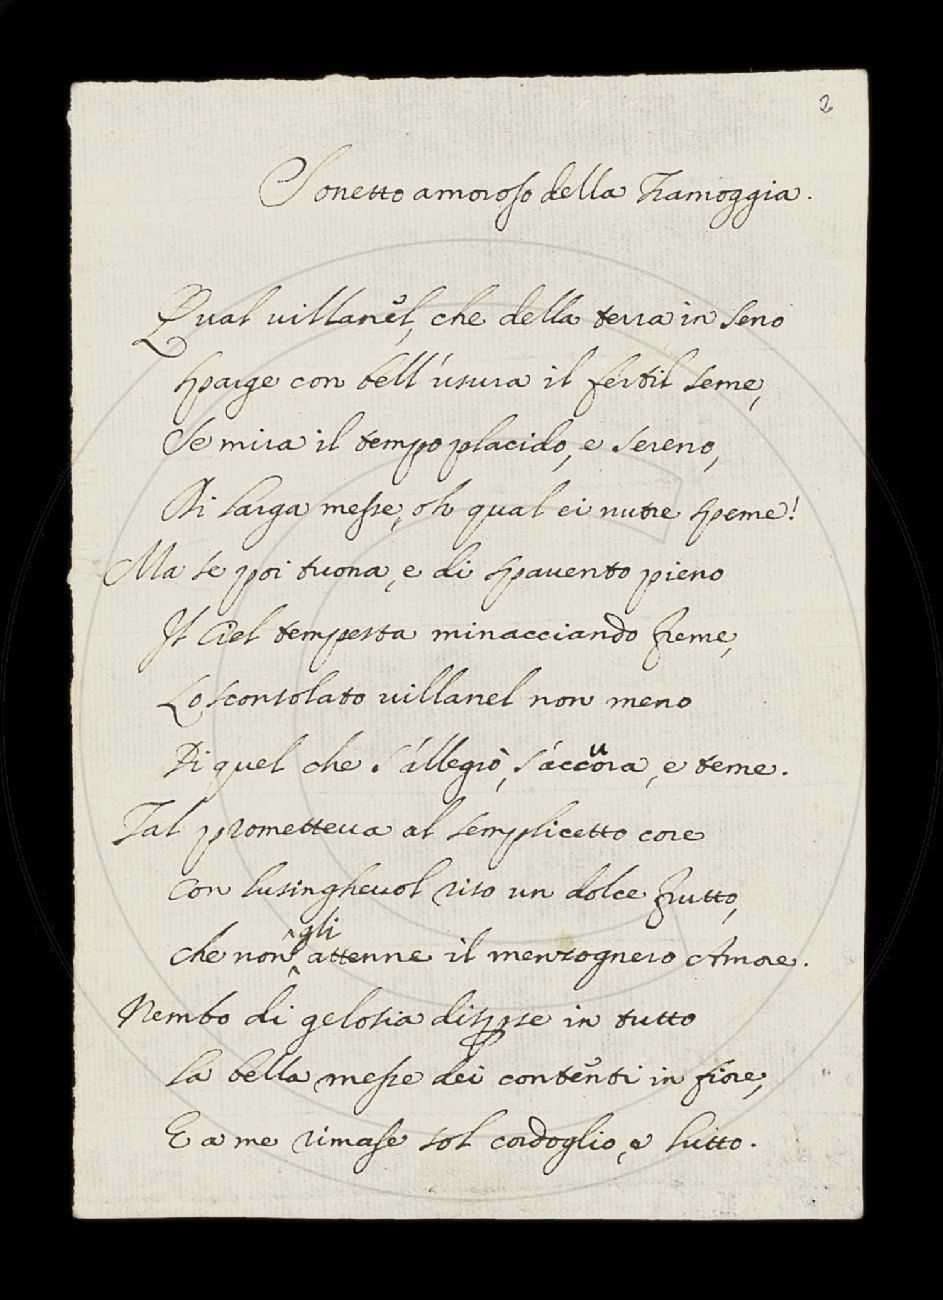 2
Sonetto amoroso della Tramoggia.
Qual villanel, che della terra in seno
Sparge con bell'usura il fertil seme,
Se mira il tempo placido, e sereno,
Di larga messe, oh qual ei nutre speme!
Ma se poi tuona, e di spavento pieno
Il Ciel tempesta minacciando freme,
Lo sconsolato villanel non meno
Di quel che s'allegrò, s'accuora, e teme.
Tal prometteva al semplicetto core
Con lusinghevol riso un dolce frutto,
Che non gli attenne il menzognero Amore.
Nembo di gelosia disperse in tutto
La bella messe dei contenti in fiore,
E a me rimase sol cordoglio, e lutto.